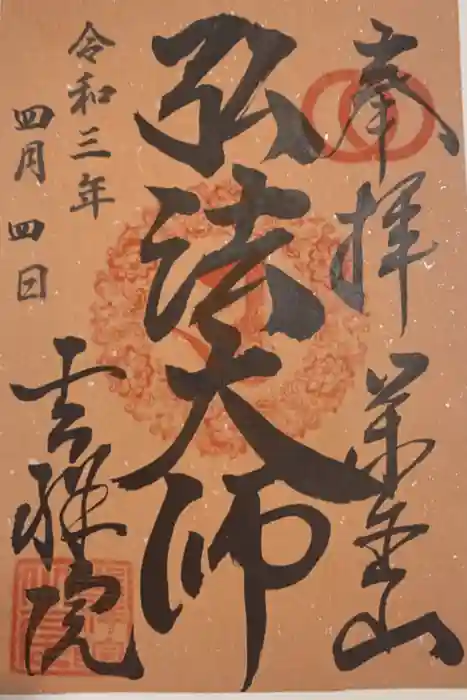 奉拝
金山
弘法大師
令和三年
四月四日
院